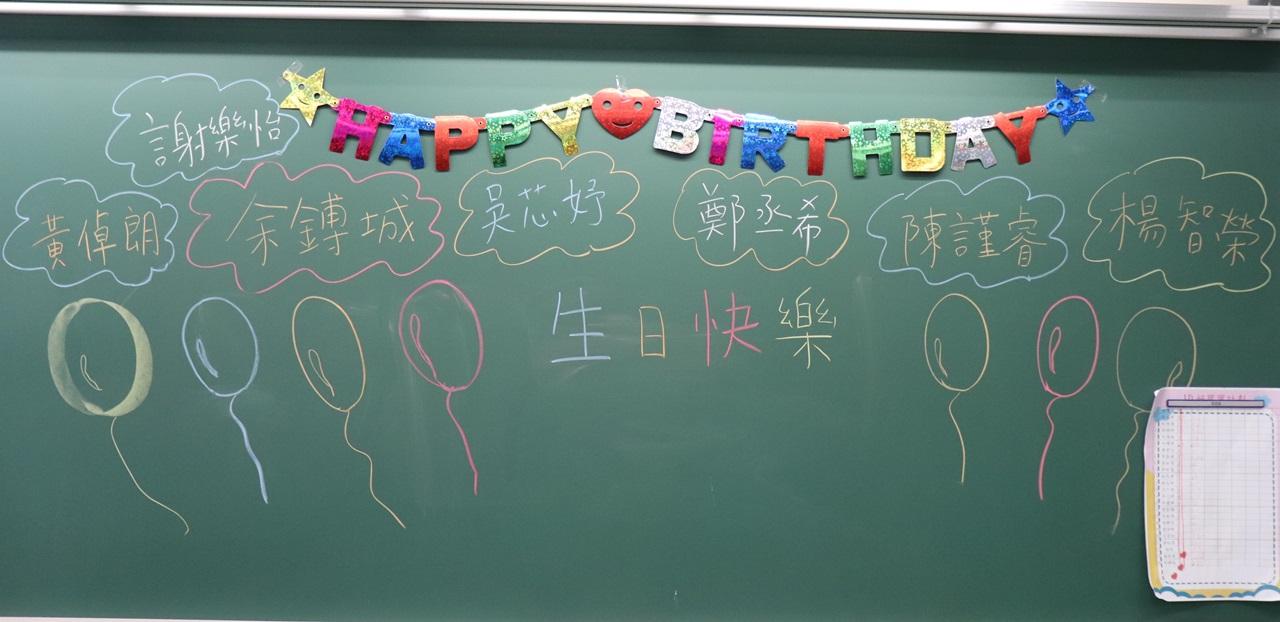 HAPPY BIRTHDAY
謝樂怡
黃倬朗 余鎛城 吳芯妤 鄭丞希 陳謹睿 楊智榮
生日快樂